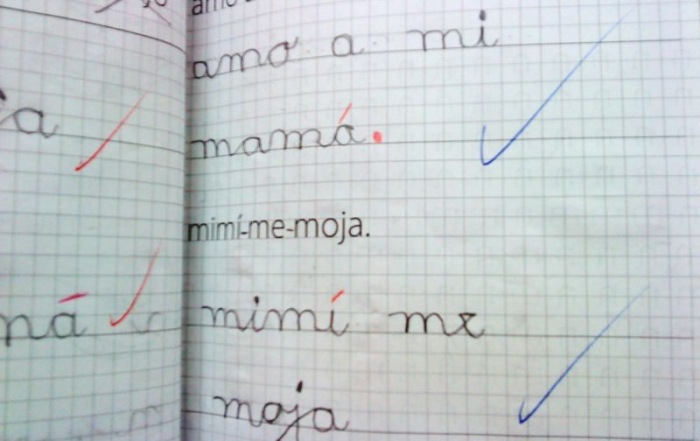 amo a mi
mamá.
mimí-me-moja.
mimí me
moja